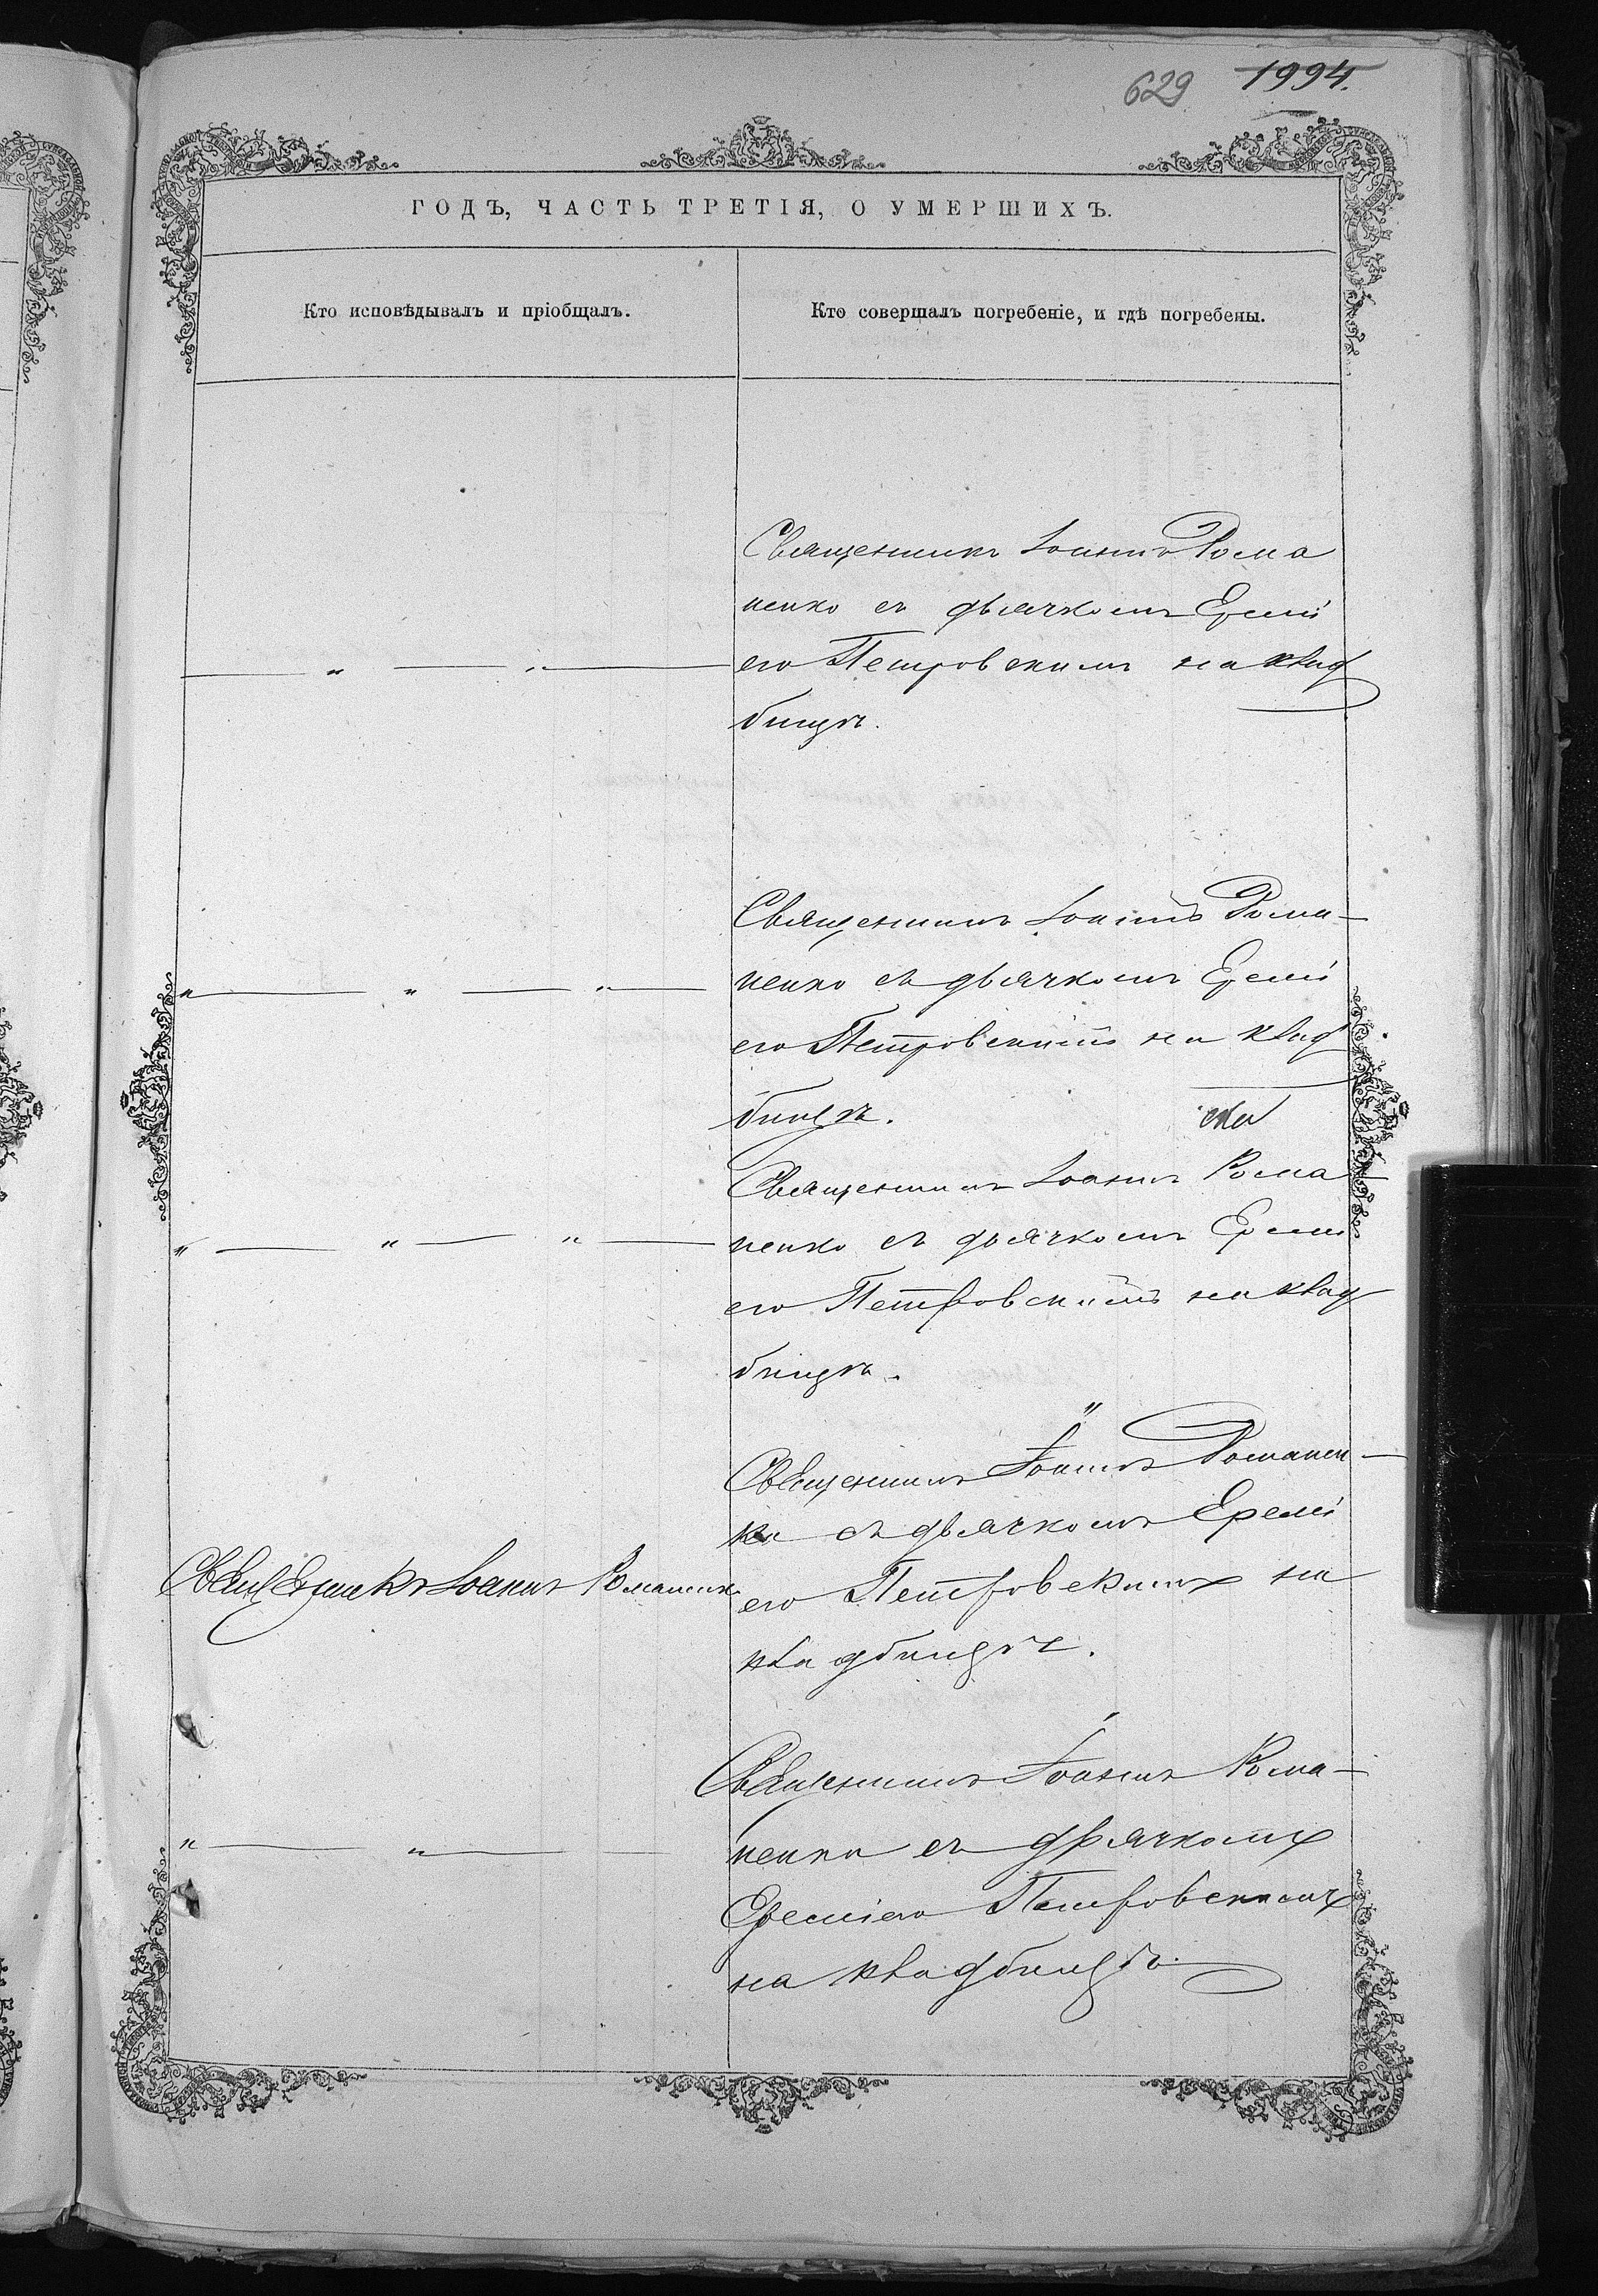 629 1994.
ГОДЪ, ЧАСТЬ ТРЕТІЯ, О УМЕРШИХЪ.
Кто исповѣдывалъ и пріобщалъ.
Кто совершалъ погребеніе, и гдѣ погребены.
Священникъ Іоаннъ Рома
ненко съ дьячкомъ Еремі
— „ — „ —
его Петровскимъ на клад
бищѣ.
Священникъ Іоаннъ Рома-
„ — „ — „ —
ненко съ дьячкомъ Еремі
его Петровскимъ на клад
бищѣ.
Священникъ Іоаннъ Рома
„ — „ — „ —
ненко съ дьячкомъ Еремі
его Петровскимъ на клад
бищѣ.
Священникъ Іоаннъ Романен-
ко съ дьячкомъ Еремі
Священникъ Іоаннъ Романенко
его Петровскимъ на
кладбищѣ.
Священникъ Іоаннъ Рома-
„ — „ —
ненко съ дьячкомъ
Ереміего Петровскимъ
на кладбищѣ.